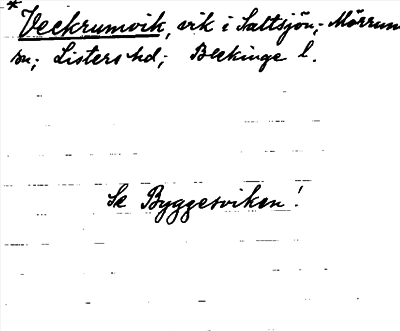 * Veckrumvik, vik i Saltsjön; Mörrum
sn; Listers hd; Blekinge l.
Se Byggesviken!